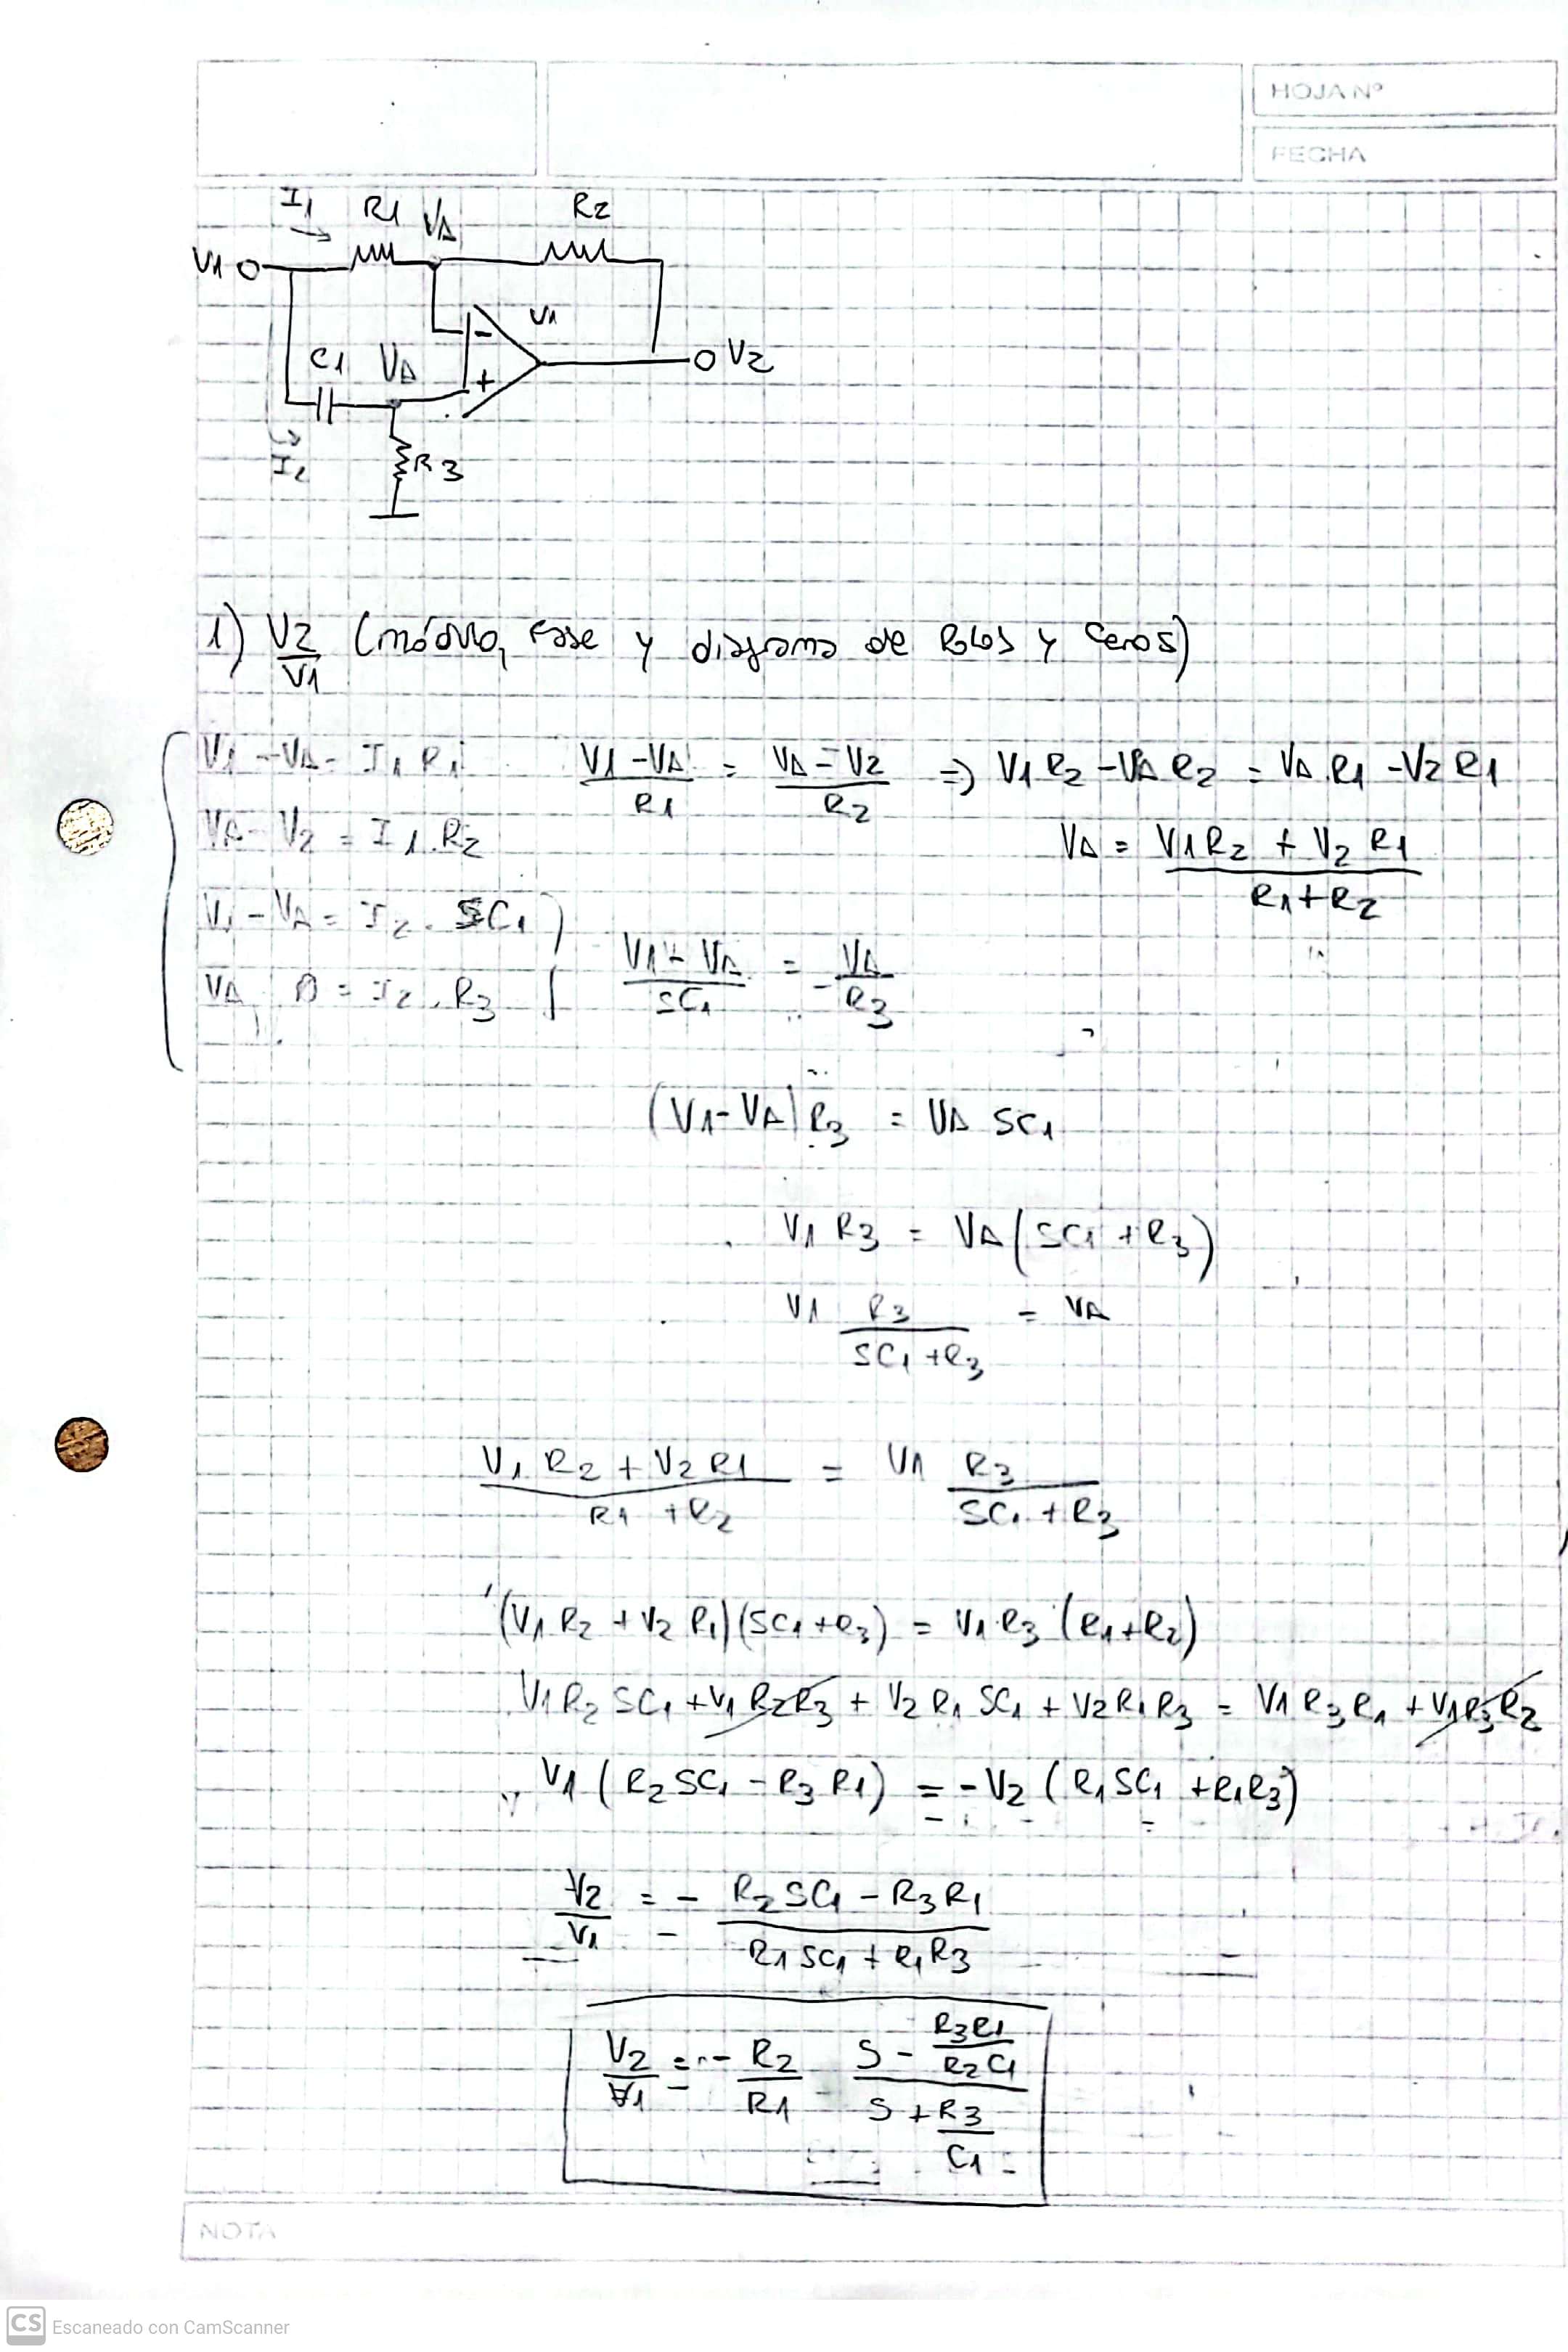 HOJA Nº
FECHA
I1 R1 VA R2
V1
V1
C1 VA - + V2
I2 R3
1) V2/V1 (módulo, fase y diagrama de Polos y Ceros)
V1 - VA = I1 R1 (V1 - VA)/R1 = (VA - V2)/R2 => V1 R2 - VA R2 = VA R1 - V2 R1
VA - V2 = I1. R2 VA = (V1 R2 + V2 R1)/(R1 + R2)
V1 - VA = I2. SC1
VA 0 = I2. R3 (V1 - VA)/SC1 = VA/R3
(V1 - VA) R3 = VA SC1
V1 R3 = VA (SC1 + R3)
V1 R3/(SC1 + R3) = VA
(V1 R2 + V2 R1)/(R1 + R2) = V1 R3/(SC1 + R3)
(V1 R2 + V2 R1)(SC1 + R3) = V1 R3 (R1 + R2)
V1 R2 SC1 + V1 R2R3 + V2 R1 SC1 + V2 R1 R3 = V1 R3 R1 + V1 R3 R2
V1 (R2 SC1 - R3 R1) = - V2 (R1 SC1 + R1R3)
V2/V1 = - (R2 SC1 - R3 R1)/(R1 SC1 + R1 R3)
V2/V1 = - R2/R1 (S - R3R1/R2C1)/(S + R3/C1)
NOTA
CS Escaneado con CamScanner